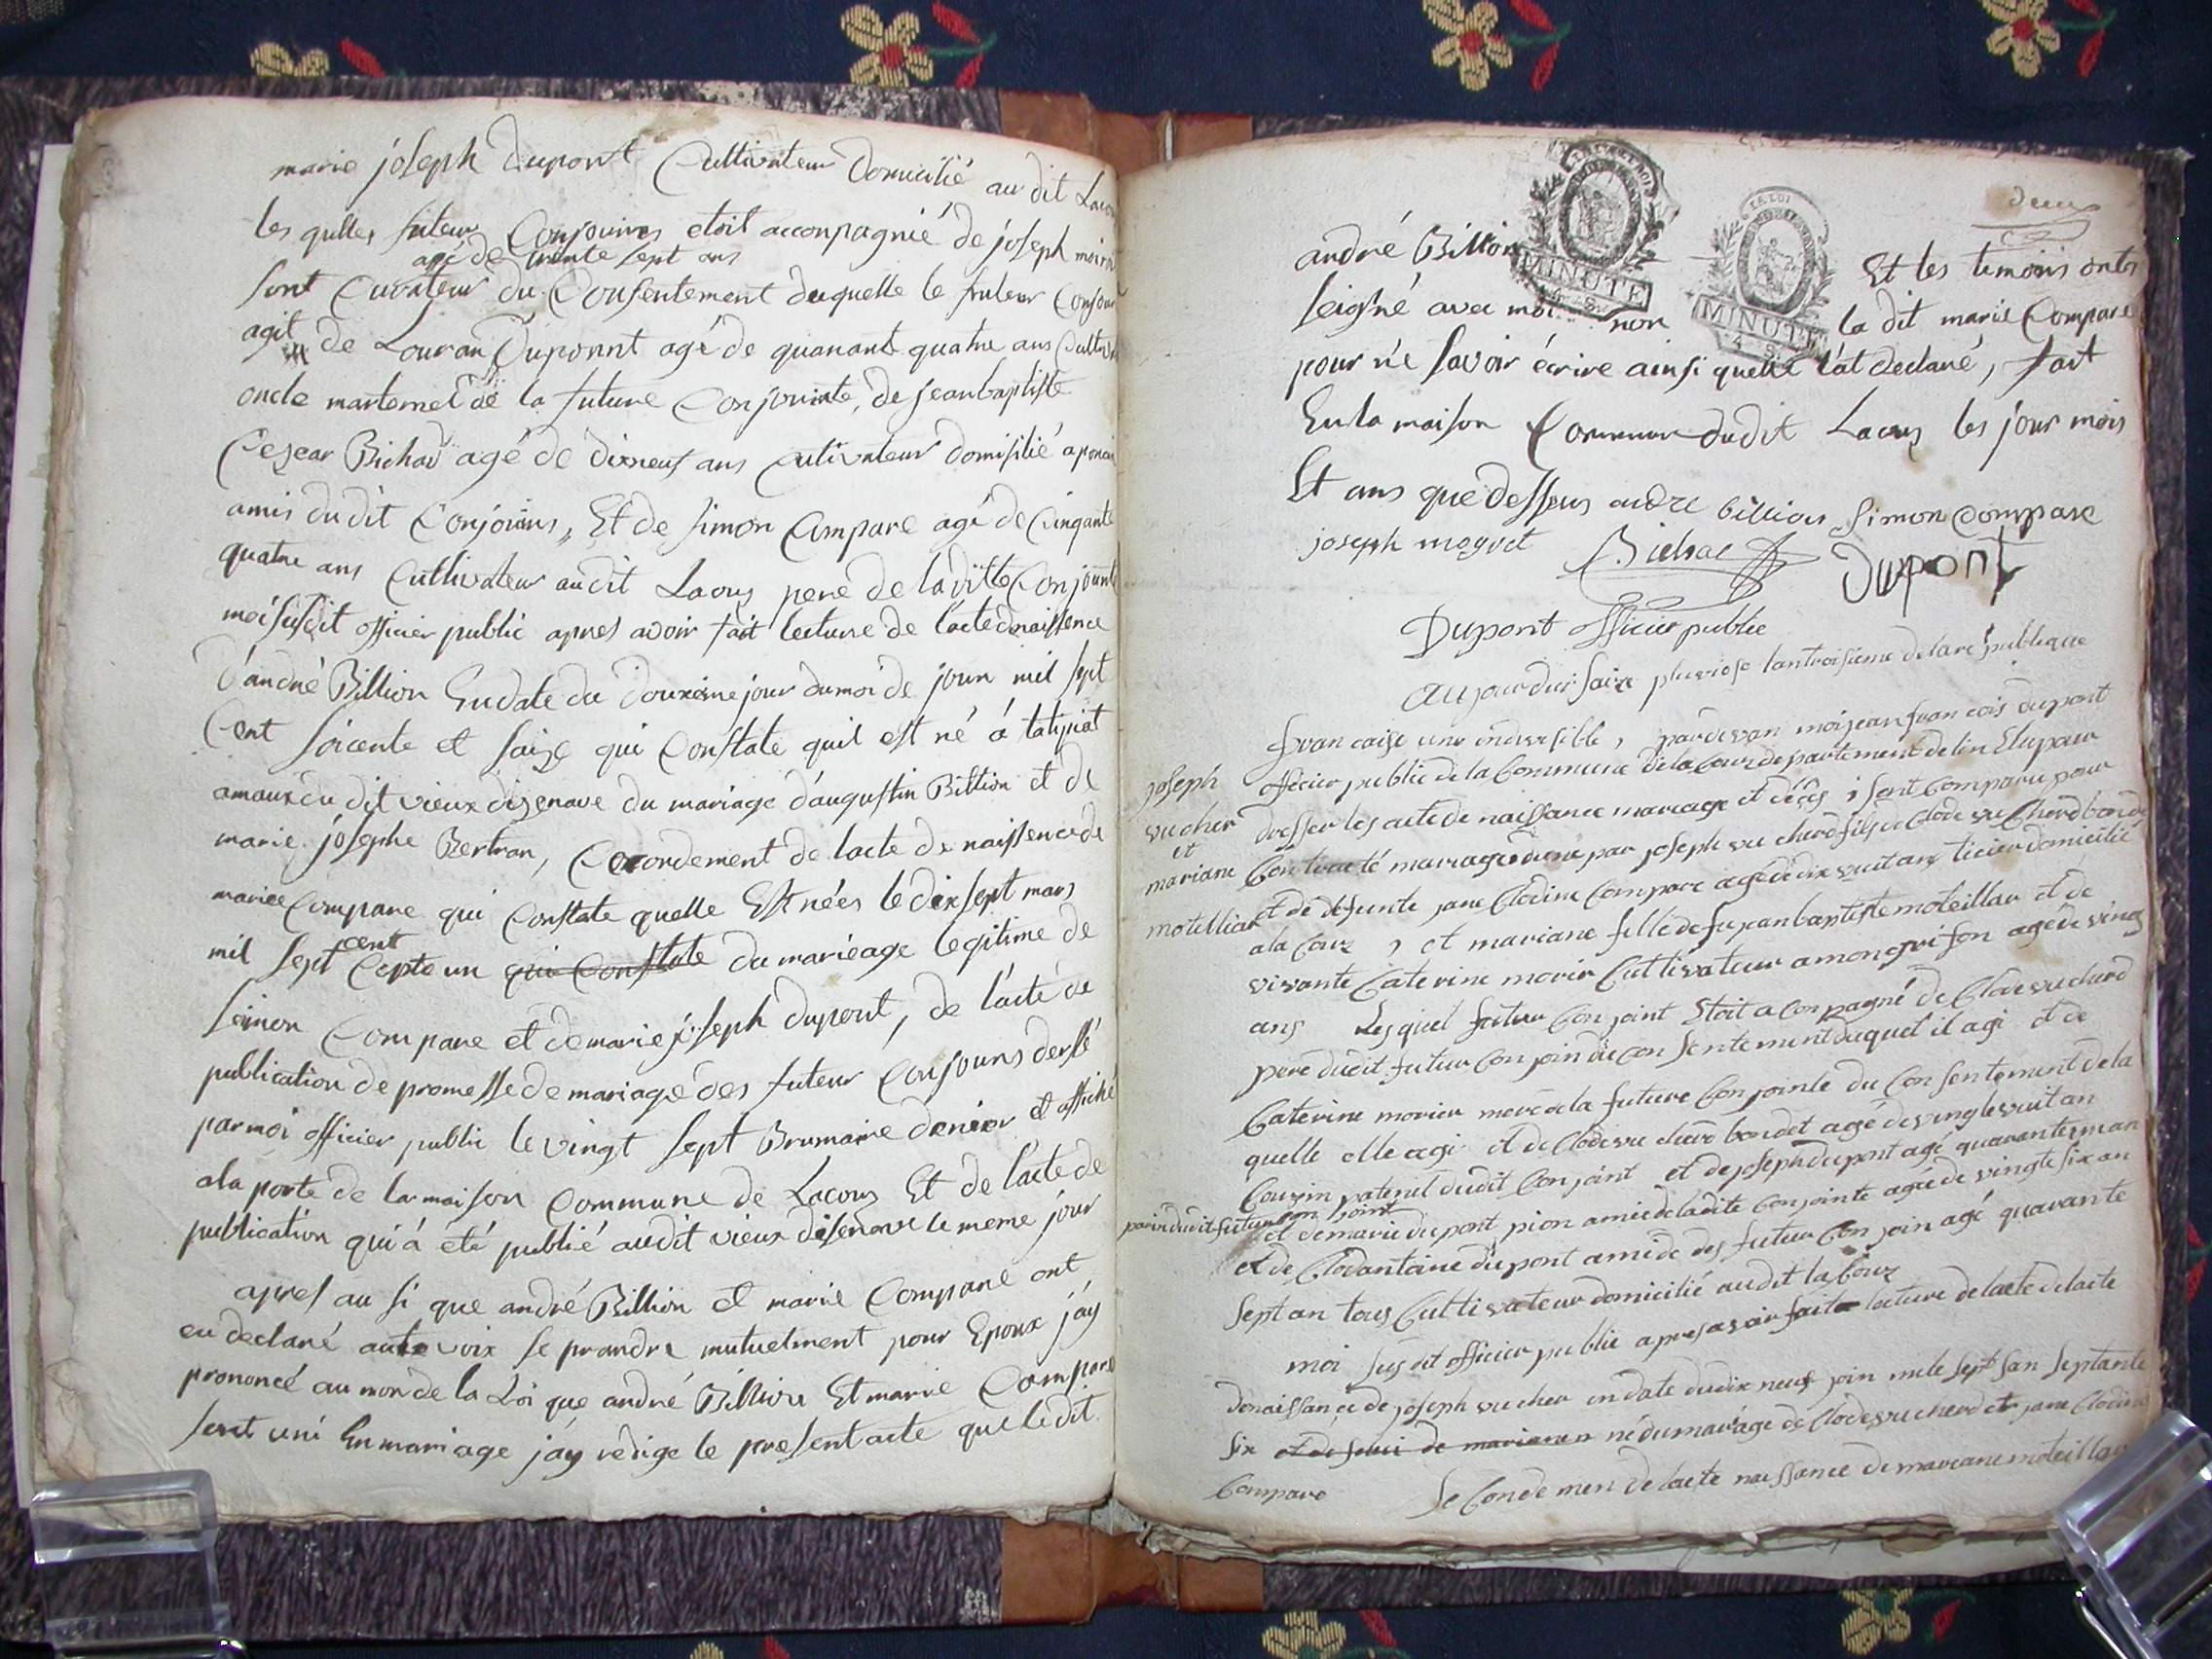 marie joseph dupont Cultivateur domicilié au dit Lacou
les quelles futeur Conjouins etoit acconpagnié de joseph moirn
agé de trante sept ans
sont Curateur du Consentement duquelle le futeur Conjou
agit de Louran Duponnt agé de quanant quatre ans Cultiv
oncle marternel de la future Conjointe, de jeanbaptiste
Cesear Bichad agé de dixneuf ans Cutivateur domisilié aponci
amis du dit Conjoins, Et de simon Compare agé de Cinqante
quatre ans Cultivateur audit Lacoux pere de laditte Conjount
moi susdit officier public apres avoir fait lecture de l'acte denaissence
d'andné Billion Endate du douxeme jour du moi de joun mil sept
Cent soicente et saize qui Constate quil est né á talysiat
amaux du dit vieux dizenave du mariage d'augustin Billion et de
marie josephe Bertran, Cecondement de lacte de naissence de
mariee Compare qui Constate quelle Est nées le dixsept mars
mil sept cent Cepte un qui Constate du marieage legitime de
simon Compare et de marie joseph dupont, de l'acte de
publication de promesse de mariage des futeur Conjouns dersé
par moi officier public le vingt sept Brumaire denier et affiché
ala porte de la maison Commune de Lacoux Et de lacte de
publication qui á eté publié audit vieux disenave le meme jour
apres au si que andné Billion et marie Compare ont
eu declaré aute voix se prandre mutuelment pour Epoux jáy
prononcé au mon de la Loi que andné Billion Et marie Compare
sont uni En mariage j'ay redige le present acte que ledit
deux
andné Billion Et les temoins ontes
MINUTE
MINUTE
LA LOI
4 S.
seigné avec moi non la dit marie Compare
pour ne savoir écrire ainsi quelle l'at declané, fait
En la maison Commun dudit Lacoux les jour mois
Et ans que dessus andre billion Simon Compare
joseph moynet Bichat Dupont
Dupont officier publie
Aujourdui saize pluviose lantroisieme delare publique
francaise une indivisible, pardevan moi jean francois dupont
officier publie de la Commune de la Couz departement de lin Elu pour
joseph
vucher
et
mariane
motelliar
dresser les acte de naissance mariage et décés, sont Comparu pour
Contracté mariage dune par joseph vucherd fils de Clode vucherd bondet
et de defunte jane Clodine Compare agé de dix vuit ans ticier domicilié
ala Couz, et mariane fille de fu jean baptiste moteillar et de
vivante Caterine morier Cultivateur a mongrifon agee de vingt
ans Lesquel futeur Conjoint Etoit acompagné de Clode vucherd
pere dudit futeur Conjoin du consentement duquel il agi et de
Caterine morier mere de la future Conjointe du Consentement de la
quelle elle agi et de Clode vucherd bondet agé de vingtevuit an
Couzin paternel dudit Conjoint et de joseph dupont agé quarante un an
parin dudit futeur Conjoint
et de marie dupont pion amie deladite Conjointe agée de vingte six an
et de Clodantoine dupont ami de des futeur Conjoin agé quarante
sept an tous Cultivateur domicilié au dit la Couz
moi susdit officier publie apres avoir faite lecture de lacte de lacte
denaissance de joseph vucher en date dudix neuf join mile sept san septante
six et de selui de mariane né du mariage de Clode vucherd et jane Clodine
Compare se Conde men de lacte naissance de mariane moteillar